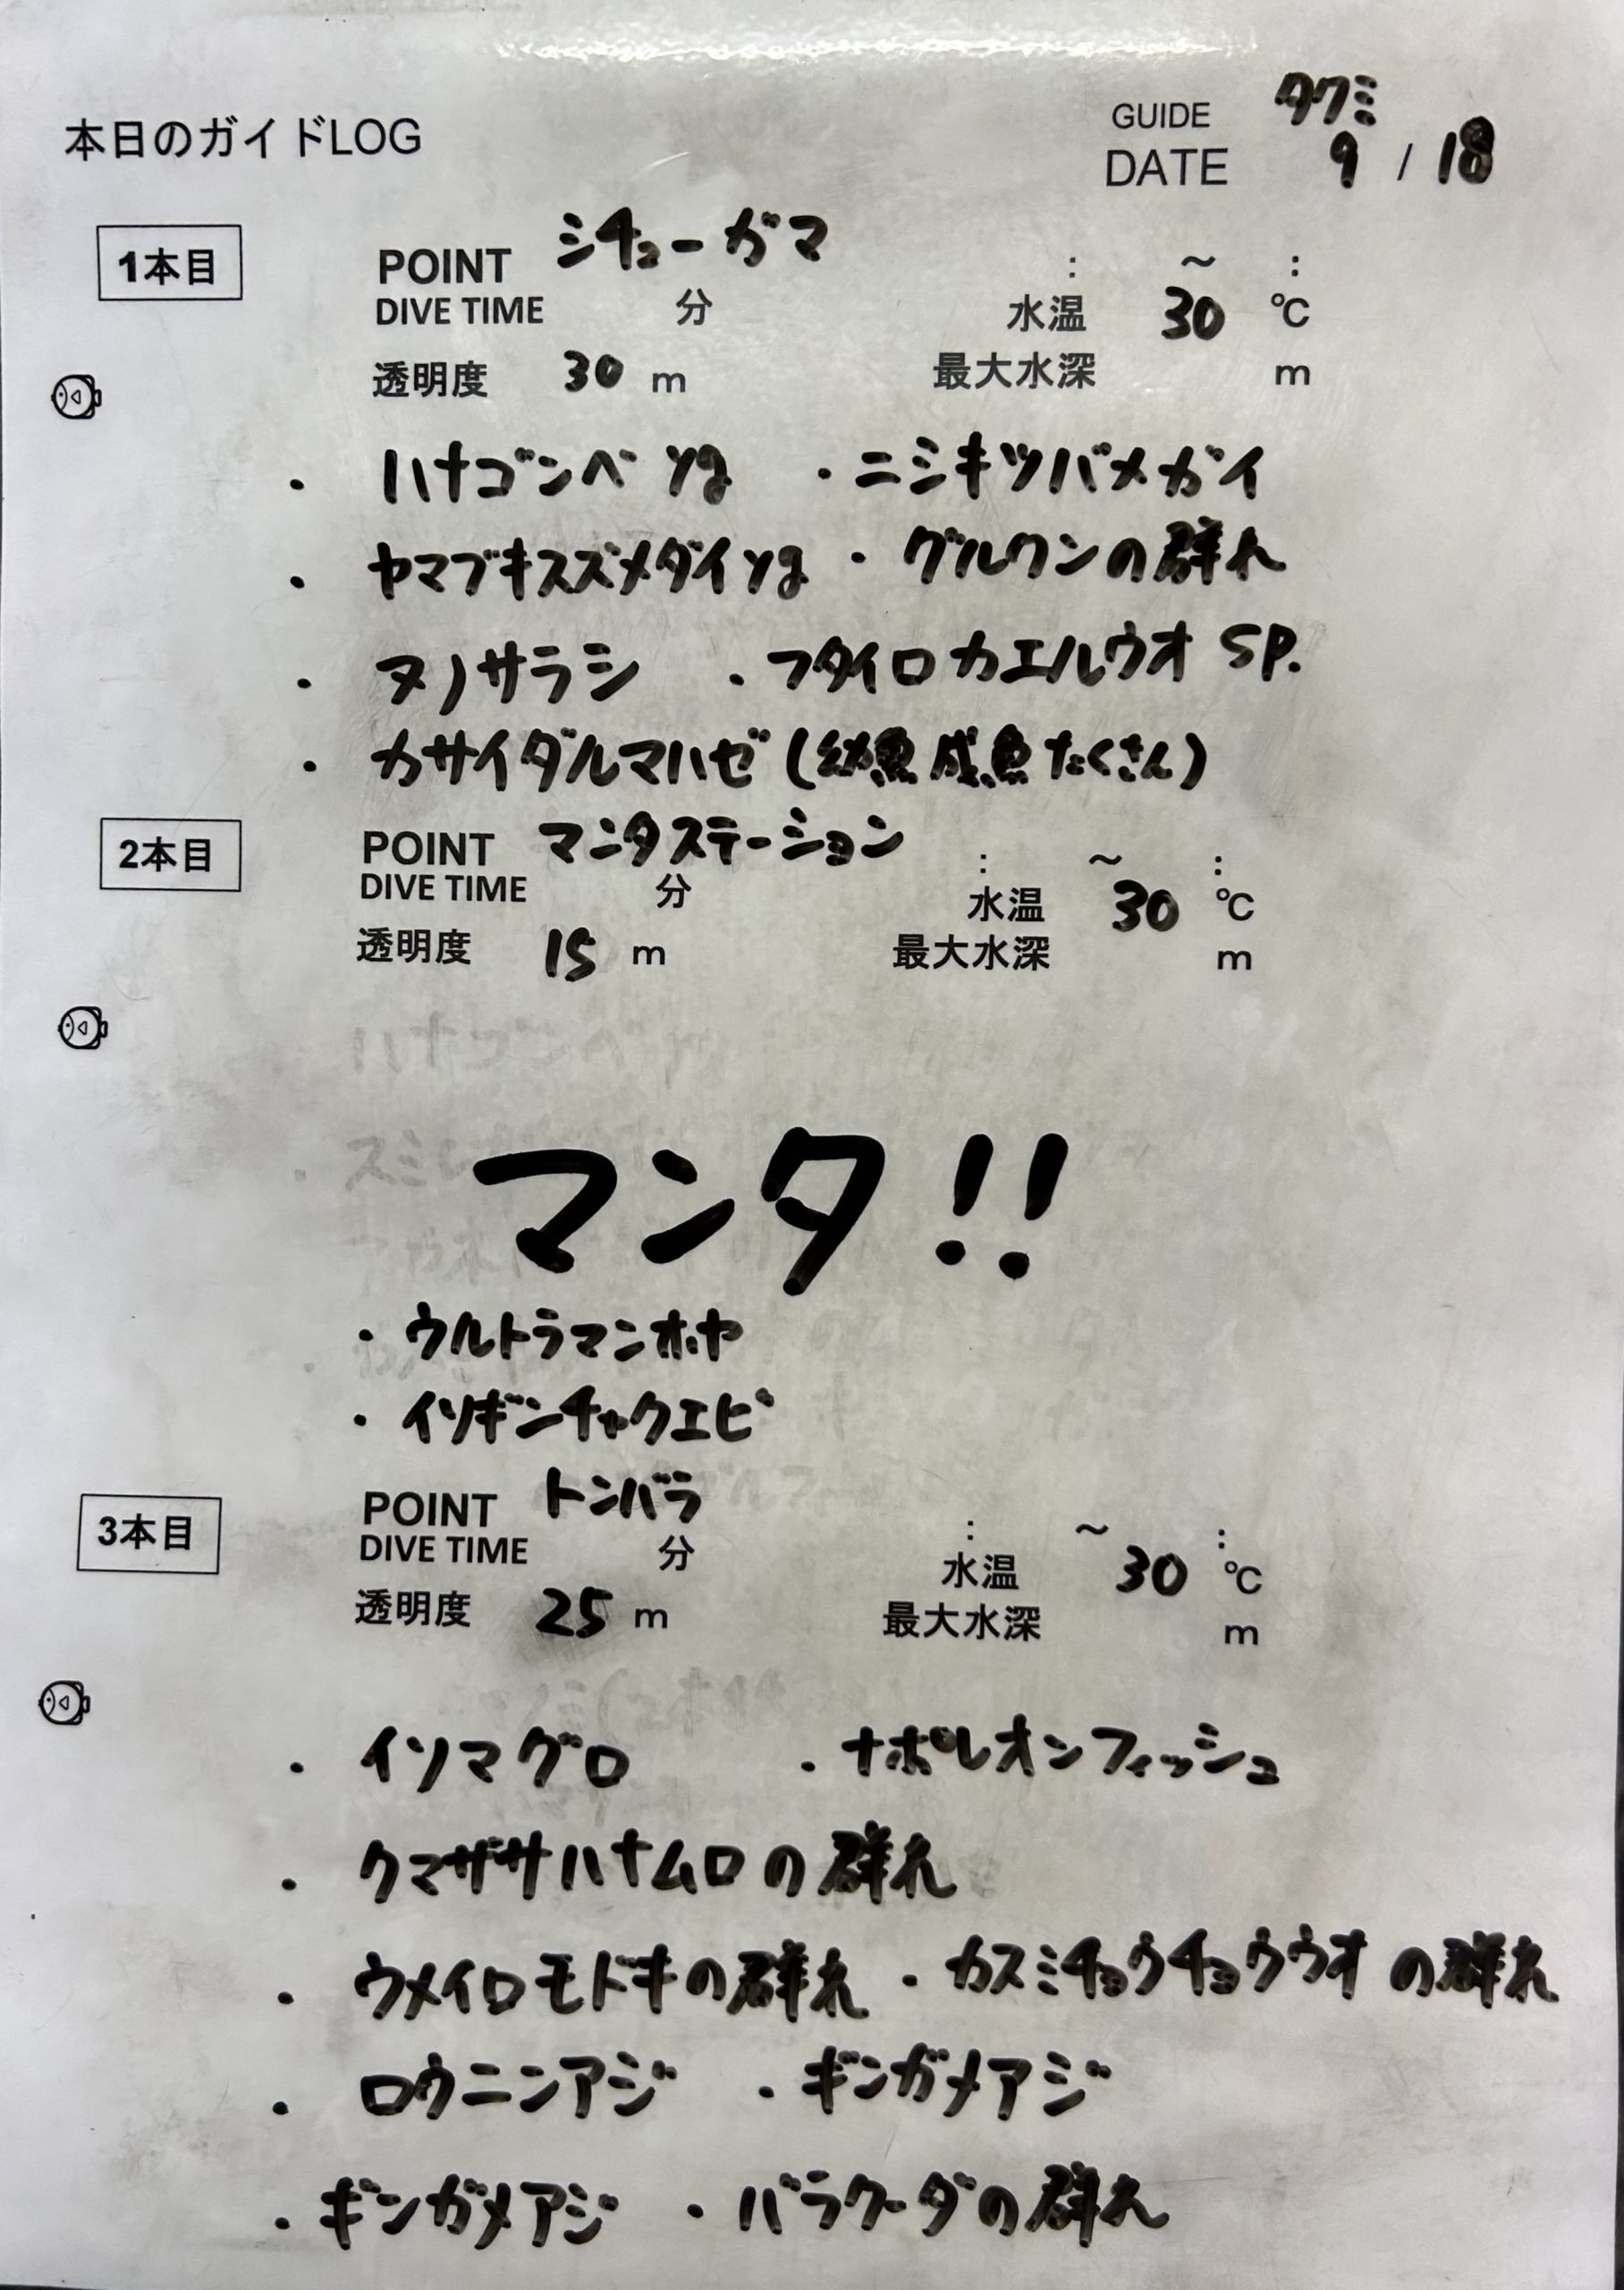 本日のガイドLOG
GUIDE タクミ
DATE 9 / 18
1本目
POINT シチューガマ : 〜 :
DIVE TIME 分 水温 30 ℃
透明度 30 m 最大水深 m
・ハナゴンベ yg ・ニシキツバメガイ
・ヤマブキスズメダイ yg ・グルクンの群れ
・ヌノサラシ ・フタイロカエルウオ SP.
・カサイダルマハゼ(幼魚成魚たくさん)
2本目
POINT マンタステーション : 〜 :
DIVE TIME 分 水温 30 ℃
透明度 15 m 最大水深 m
マンタ!!
・ウルトラマンホヤ
・イソギンチャクエビ
3本目
POINT トンバラ : 〜 :
DIVE TIME 分 水温 30 ℃
透明度 25 m 最大水深 m
・イソマグロ ・ナポレオンフィッシュ
・クマザサハナムロの群れ
・ウメイロモドキの群れ ・カスミチョウチョウウオの群れ
・ロウニンアジ ・ギンガメアジ
・ギンガメアジ ・バラクーダの群れ